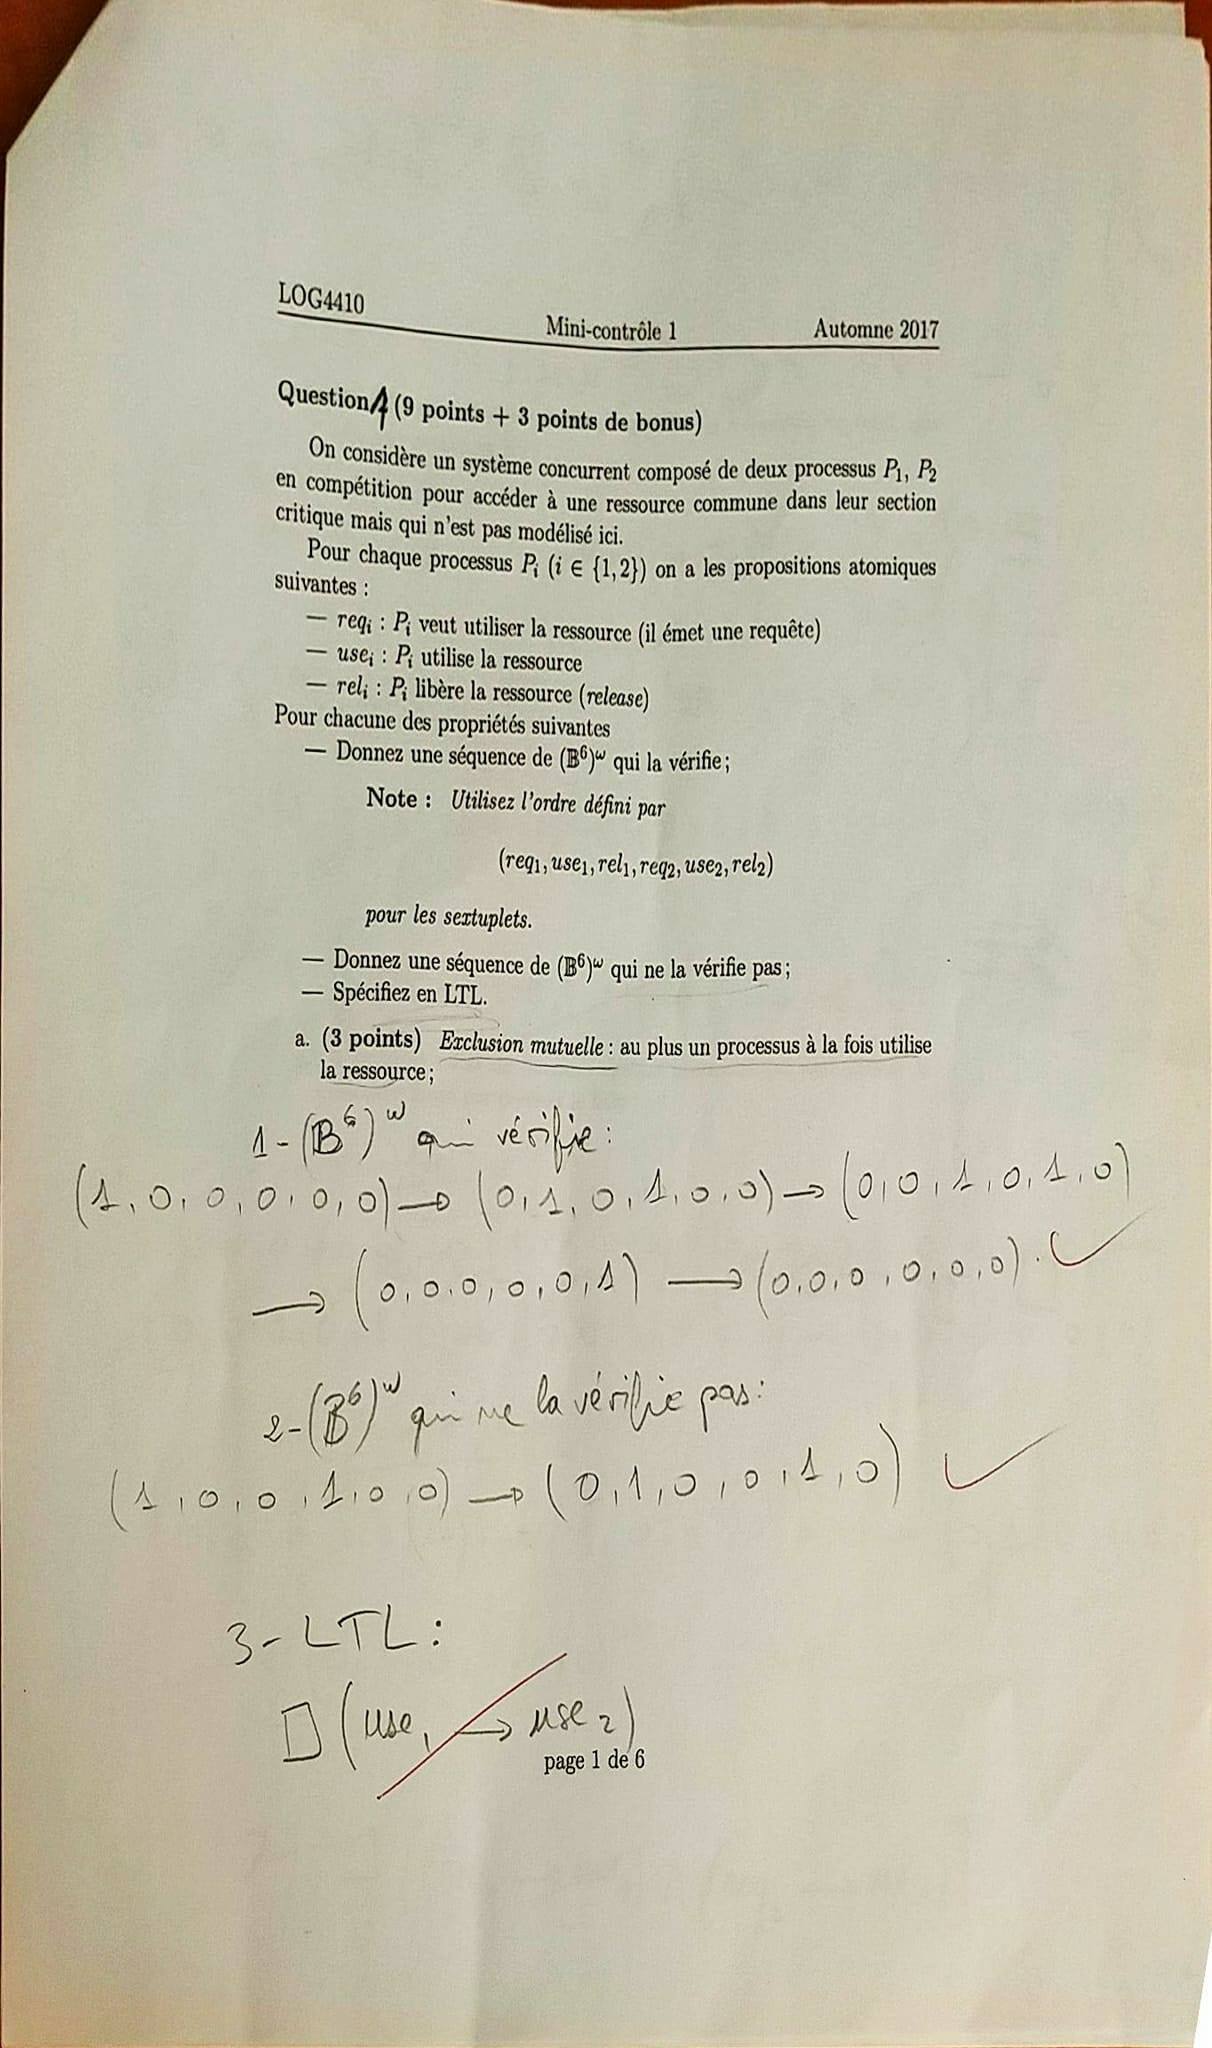 LOG4410
Mini-contrôle 1
Automne 2017
Question 1 (9 points + 3 points de bonus)
On considère un système concurrent composé de deux processus P₁, P₂
en compétition pour accéder à une ressource commune dans leur section
critique mais qui n'est pas modélisé ici.
Pour chaque processus Pᵢ (i ∈ {1,2}) on a les propositions atomiques
suivantes :
— reqᵢ : Pᵢ veut utiliser la ressource (il émet une requête)
— useᵢ : Pᵢ utilise la ressource
— relᵢ : Pᵢ libère la ressource (release)
Pour chacune des propriétés suivantes
— Donnez une séquence de (𝔹⁶)^ω qui la vérifie ;
Note : Utilisez l'ordre défini par
(req₁, use₁, rel₁, req₂, use₂, rel₂)
pour les sextuplets.
— Donnez une séquence de (𝔹⁶)^ω qui ne la vérifie pas ;
— Spécifiez en LTL.
a. (3 points) Exclusion mutuelle : au plus un processus à la fois utilise
la ressource ;
1 - (𝔹⁶)^ω qui vérifie :
(1, 0, 0, 0, 0, 0) → (0, 1, 0, 1, 0, 0) → (0, 0, 1, 0, 1, 0)
→ (0, 0, 0, 0, 0, 1) → (0, 0, 0, 0, 0, 0) . ✓
2 - (𝔹⁶)^ω qui ne la vérifie pas :
(1, 0, 0, 1, 0, 0) → (0, 1, 0, 0, 1, 0) ✓
3 - LTL :
□ (use₁ → use₂)
page 1 de 6